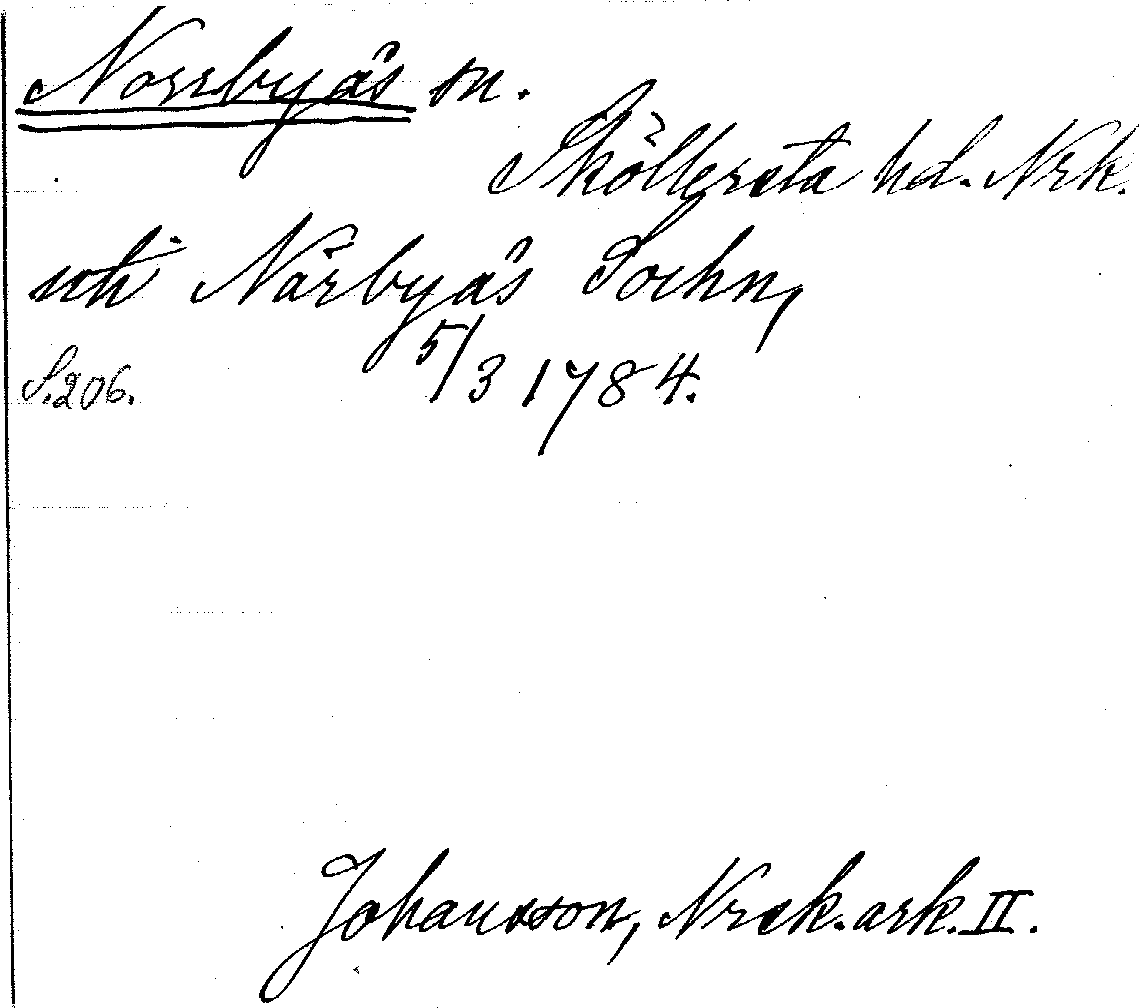 Norrbyås sn.
Sköllersta hd. Nrk.
uti Närbyås Sochn,
5/3 1784.
S. 206.
Johansson, Nrck. ark. II.